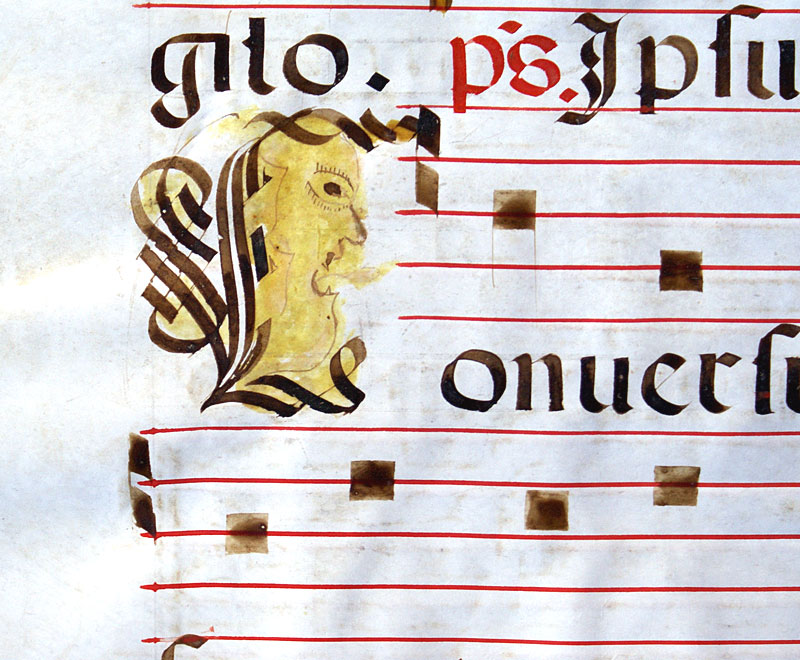 gito. ps. Ipsu
Conuersu